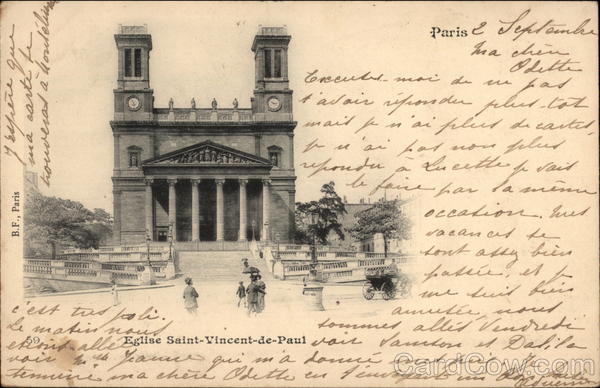 Paris 2 Septembre
Ma chère
Odette
Excuses-moi de ne pas
t'avoir répondu plus-tot
mais je n'ai plus de cartes,
je n'ai pas non plus
répondu à Lucette je vais
le faire par la même
occasion. Mes
vacances se
sont assez bien
passée, et je
me suis bien
amusée, nous
sommes allés Vendredi
voir Samson et Dalila
c'est très poli.
Le matin nous
allés
voir Mme Jeanne qui m'a donné
termine ma chère Odette en t'envoyant
J'espère que
ma carte te
trouvera à
B.F., Paris
59 Eglise Saint-Vincent-de-Paul
CardCow.com